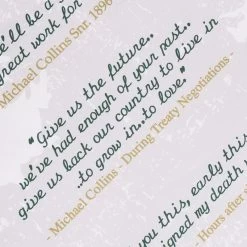 e'll be a
great work for
- Michael Collins Snr. 1896
"Give us the future..
we've had enough of your past..
give us back our country to live in
..to grow in..to love."
- Michael Collins - During Treaty Negotiations -
you this, early this
signed my death
- Hours after